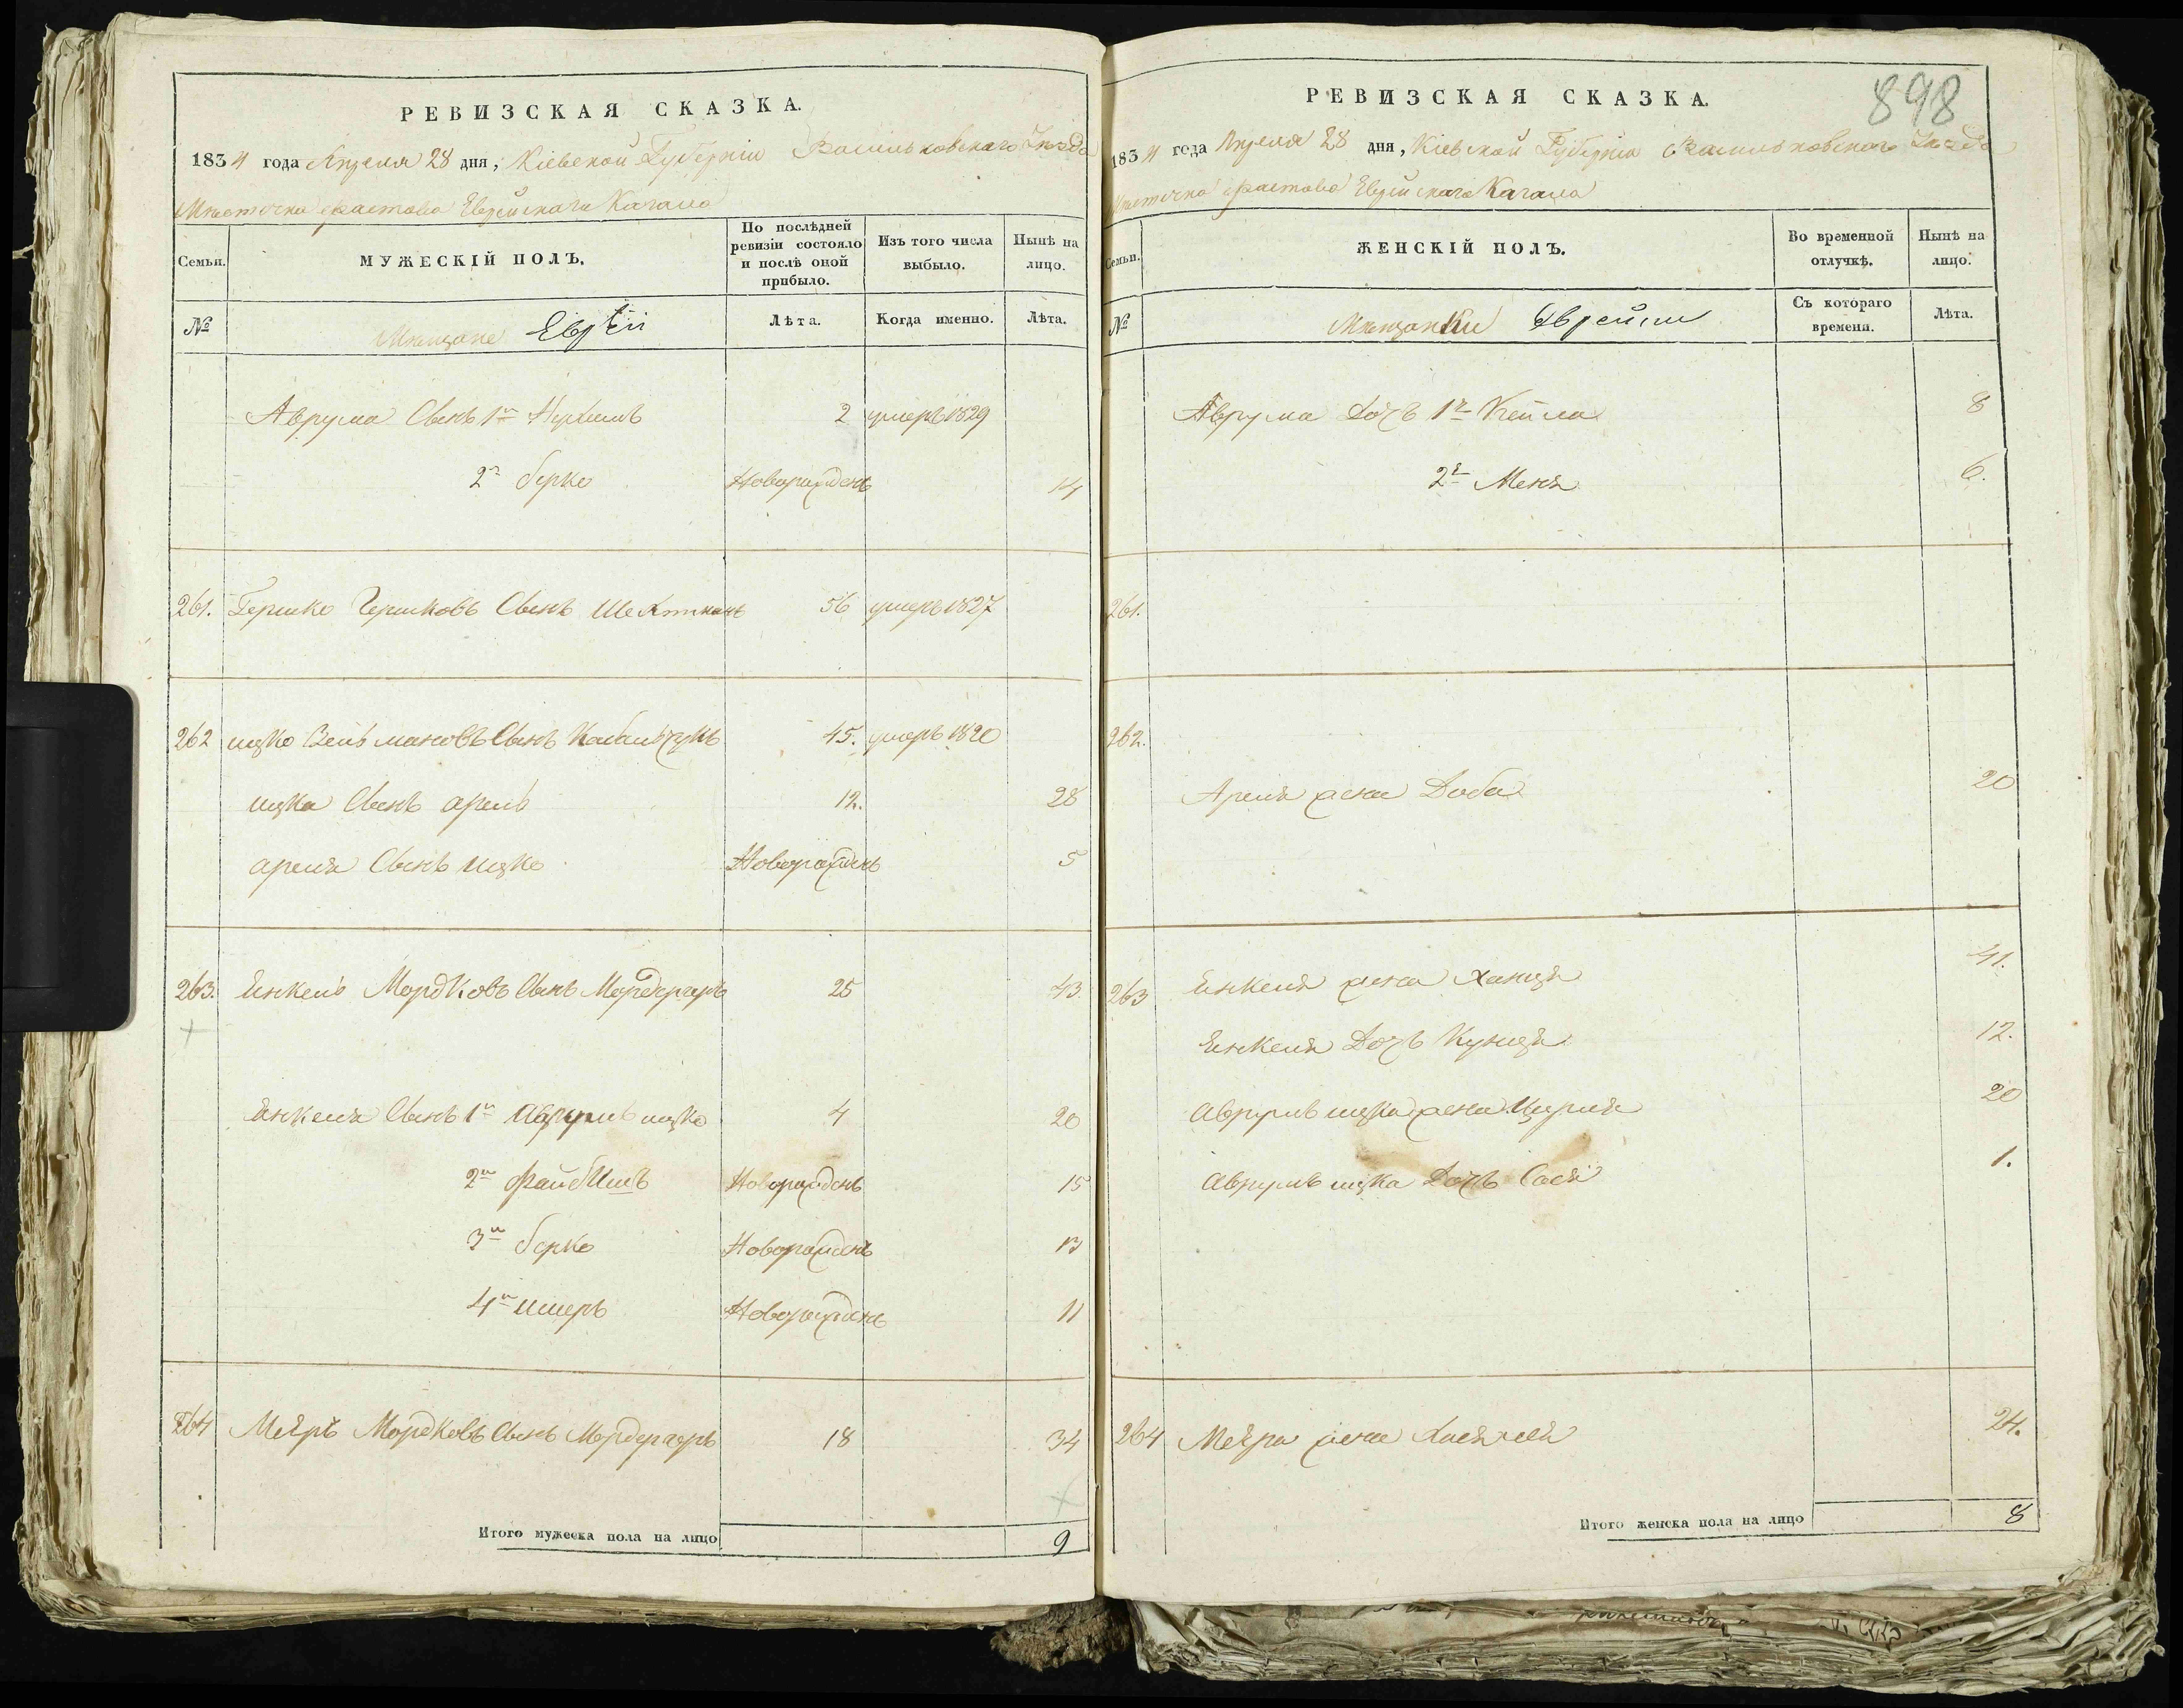 РЕВИЗСКАЯ СКАЗКА.
1834 года Апреля 28 дня, Кіевской Губерніи Васильковского Уезда
Местечка Фастова Еврейскаго Кагала
Семьи.
МУЖЕСКІЙ ПОЛЪ.
По послѣдней ревизіи состояло и послѣ оной прибыло.
Изъ того числа выбыло.
Нынѣ на лицо.
№
Мещане Евреи
Лѣта.
Когда именно.
Лѣта.
Аврума Сынъ 1й 2 умеръ 1829
2й Берко Новорожденъ 14
261. Гершко Гершковъ Сынъ 56 умеръ 1827
262 ицко Вельмановъ Сынъ 45. умеръ 1820
ицка Сынъ арель 12. 28
ареля Сынъ ицко Новорожденъ 5
263. Янкель Мордковъ Сынъ Мордергеръ 25 43
Янкеля Сынъ 1й Аврумъ ицко 4 20
2й Файбишъ Новорожденъ 15
3й Берко Новорожденъ 13
4й Новорожденъ 11
264 Меяръ Мордковъ Сынъ Мордергеръ 18 34
Итого мужеска пола на лицо 9
898
РЕВИЗСКАЯ СКАЗКА.
1834 года Апреля 28 дня, Кіевской Губерніи Васильковского Уезда
Местечка Фастова Еврейскаго Кагала
Семьи.
ЖЕНСКІЙ ПОЛЪ.
Во временной отлучкѣ.
Нынѣ на лицо.
№
Мещанки Еврейки
Съ котораго времени.
Лѣта.
Аврума Дочь 1я Кейла 8
2я Меня 6.
261.
262.
Ареля жена Доба 20
263 Янкеля жена Ханця 41.
Янкеля Дочь Куниця 12.
Аврумъ ицка жена Цирля 20
Аврумъ ицка Дочь Сося 1.
264 Меяра жена 24.
Итого женска пола на лицо 8